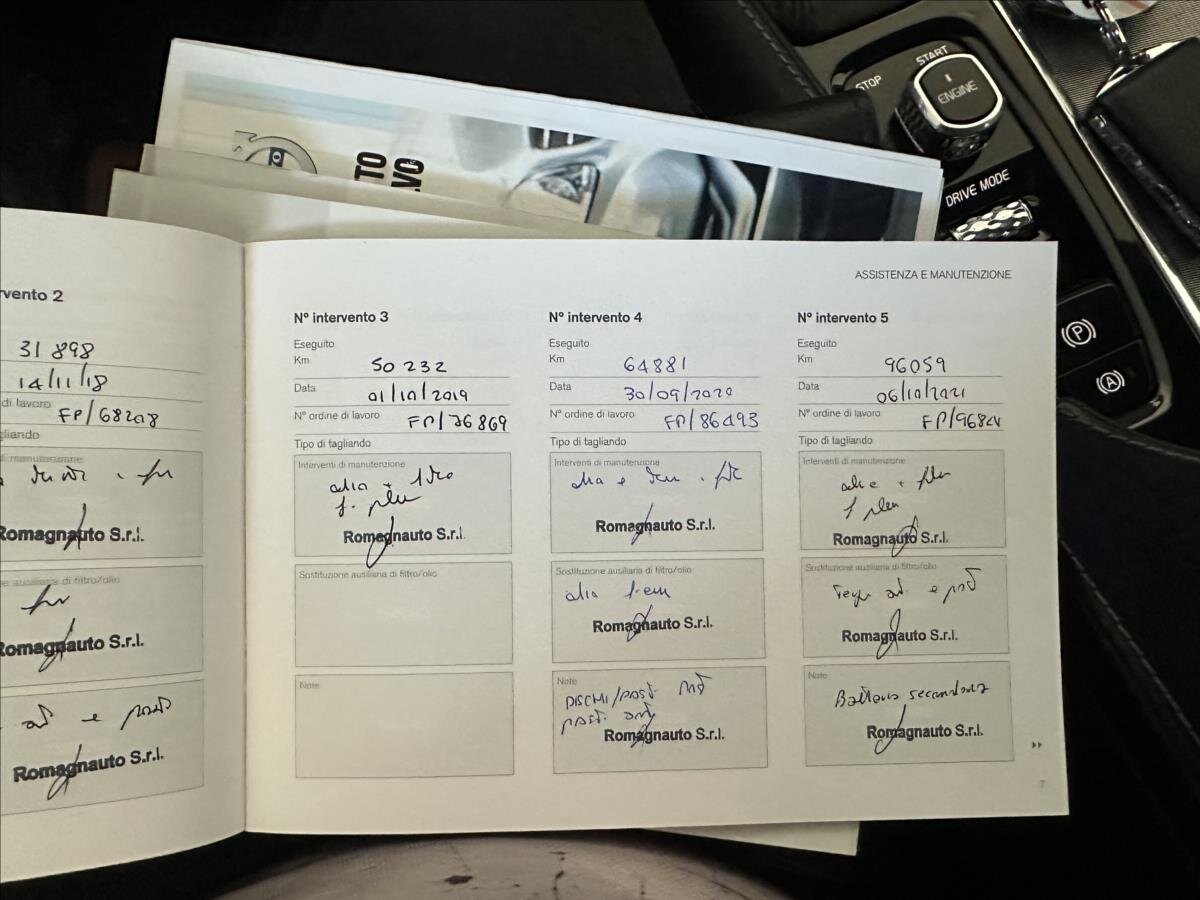 START
STOP
ENGINE
DRIVE MODE
TO
VO
ASSISTENZA E MANUTENZIONE
rvento 2
31 898
14/11/18
di lavoro
FP/68208
gliando
manutenzione
Romagnauto S.r.l.
e ausiliaria di filtro/olio
Romagnauto S.r.l.
e
Romagnauto S.r.l.
N° intervento 3
Eseguito
Km 50 232
Data 01/10/2019
N° ordine di lavoro FP/76869
Tipo di tagliando
Interventi di manutenzione
Romagnauto S.r.l.
Sostituzione ausiliaria di filtro/olio
Note
N° intervento 4
Eseguito
Km 64881
Data 30/09/2020
N° ordine di lavoro FP/86493
Tipo di tagliando
Interventi di manutenzione
Romagnauto S.r.l.
Sostituzione ausiliaria di filtro/olio
Romagnauto S.r.l.
Note
DISCHI/POST.
post. ant
Romagnauto S.r.l.
N° intervento 5
Eseguito
Km 96059
Data 06/10/2021
N° ordine di lavoro
Tipo di tagliando
Interventi di manutenzione
Romagnauto S.r.l.
Sostituzione ausiliaria di filtro/olio
Romagnauto S.r.l.
Note
Batteria secondaria
Romagnauto S.r.l.
7
(P)
(A)